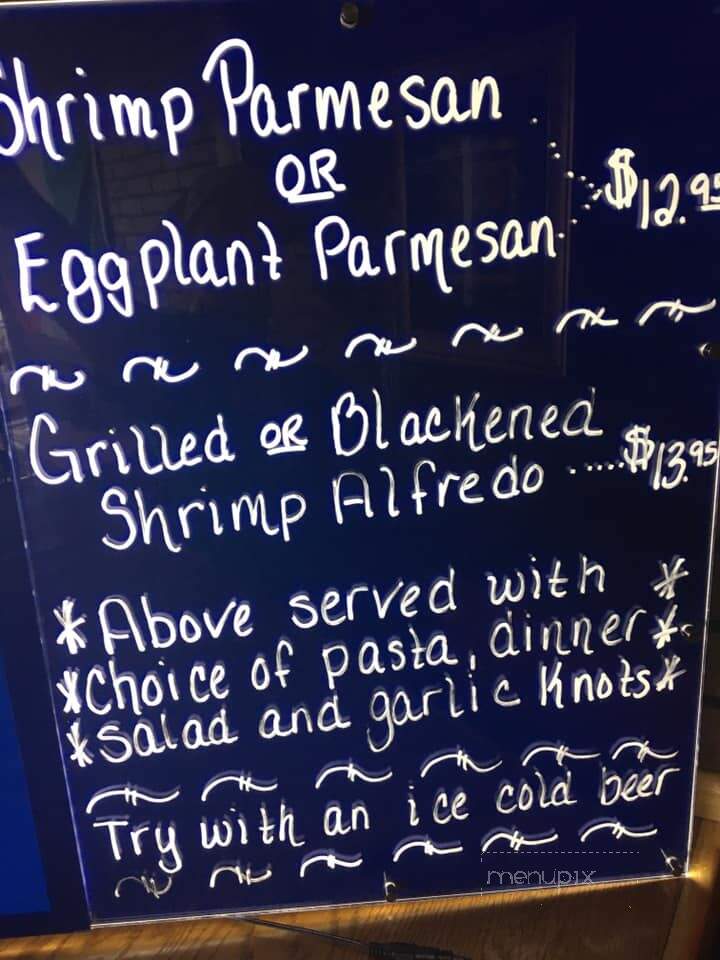 Shrimp Parmesan
OR
Eggplant Parmesan
$12.95
Grilled OR Blackened
Shrimp Alfredo ..... $13.95
*Above served with *
*Choice of pasta, dinner*
*Salad and garlic Knots*
Try with an ice cold beer
menupix